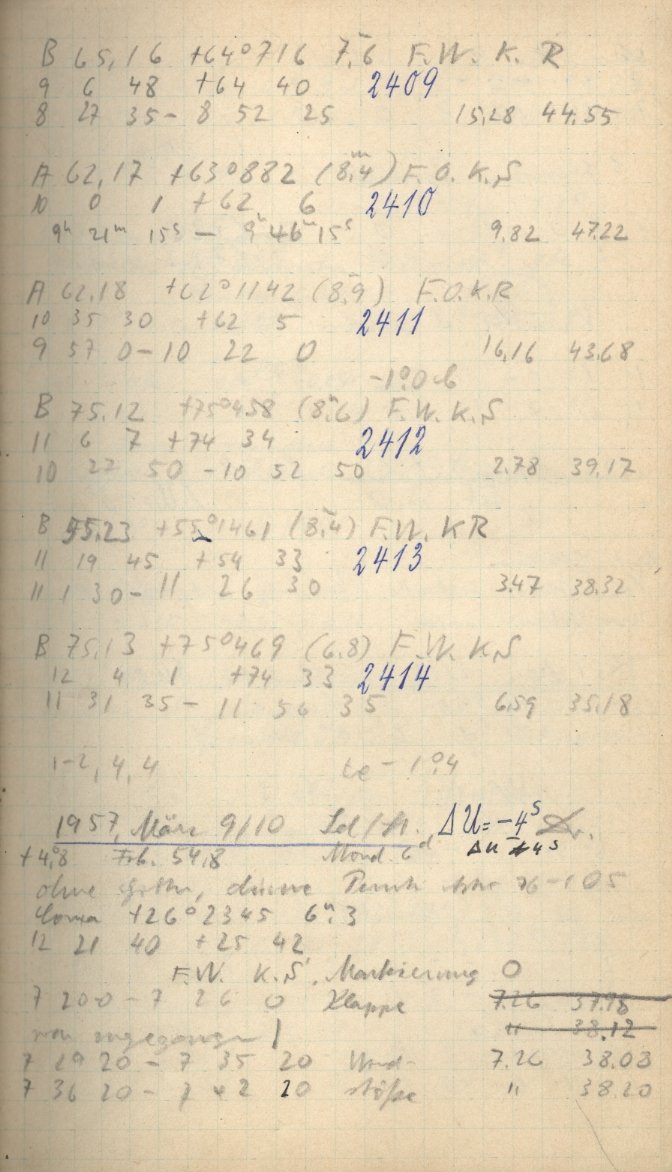 B 65,16 +64°716 7,6 F.W. K. R
9 6 48 +64 40 2409
8 27 35 - 8 52 25 15,28 44.55
A 62,17 +63°882 (8,4) F.O. K.S
10 0 1 +62 6 2410
9h 21m 15s - 9h 46m 15s 9.82 47.22
A 62.18 +62°1142 (8,9) F.O.K.R
10 35 30 +62 5 2411
9 57 0 - 10 22 0 16,16 43.68
-1°,0
B 75.12 +75°458 (8,6) F.W. K.S
11 6 7 +74 34 2412
10 27 50 - 10 52 50 2.78 39.17
B 55.23 +55°1461 (8,4) F.W. KR
11 19 45 +54 33 2413
11 1 30 - 11 26 30 3.47 38.32
B 75.13 +75°469 (6.8) F.W. K.S
12 4 1 +74 33 2414
11 31 35 - 11 56 35 6.59 35.18
1-2, 4, 4 te - 1°,4
1957, März 9/10 ΔU = -4s
+4,8 54,8 Mond 6d ΔU +4s
ohne dünne 76-105
Coma +26°2345 6m,3
12 21 40 +25 42
F.W. K.S. Markierung 0
7 20 0 - 7 26 0 Klappe 7.26 37.98
" 38.12
7 29 20 - 7 35 20 7.26 38.08
7 36 20 - 7 42 20 stöße " 38.20